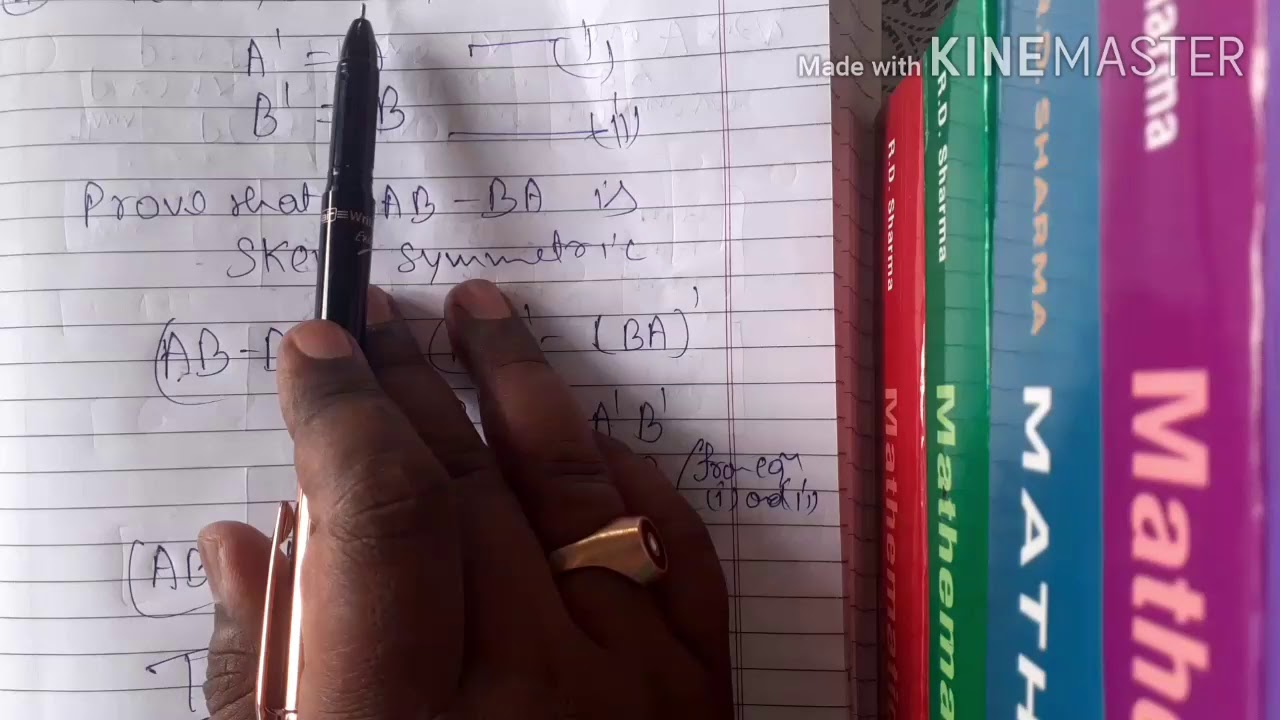 A' = (i)
B' = B (ii)
Prove that AB - BA is
Skew symmetric
(AB - B ' - (BA)'
A'B'
(from eqn
(i) and (ii)
(AB
T
Made with KINEMASTER
R.D. Sharma
Mathematic
R.D. Sharma
Mathema
R.D. SHARMA
MATH
harma
Mathe